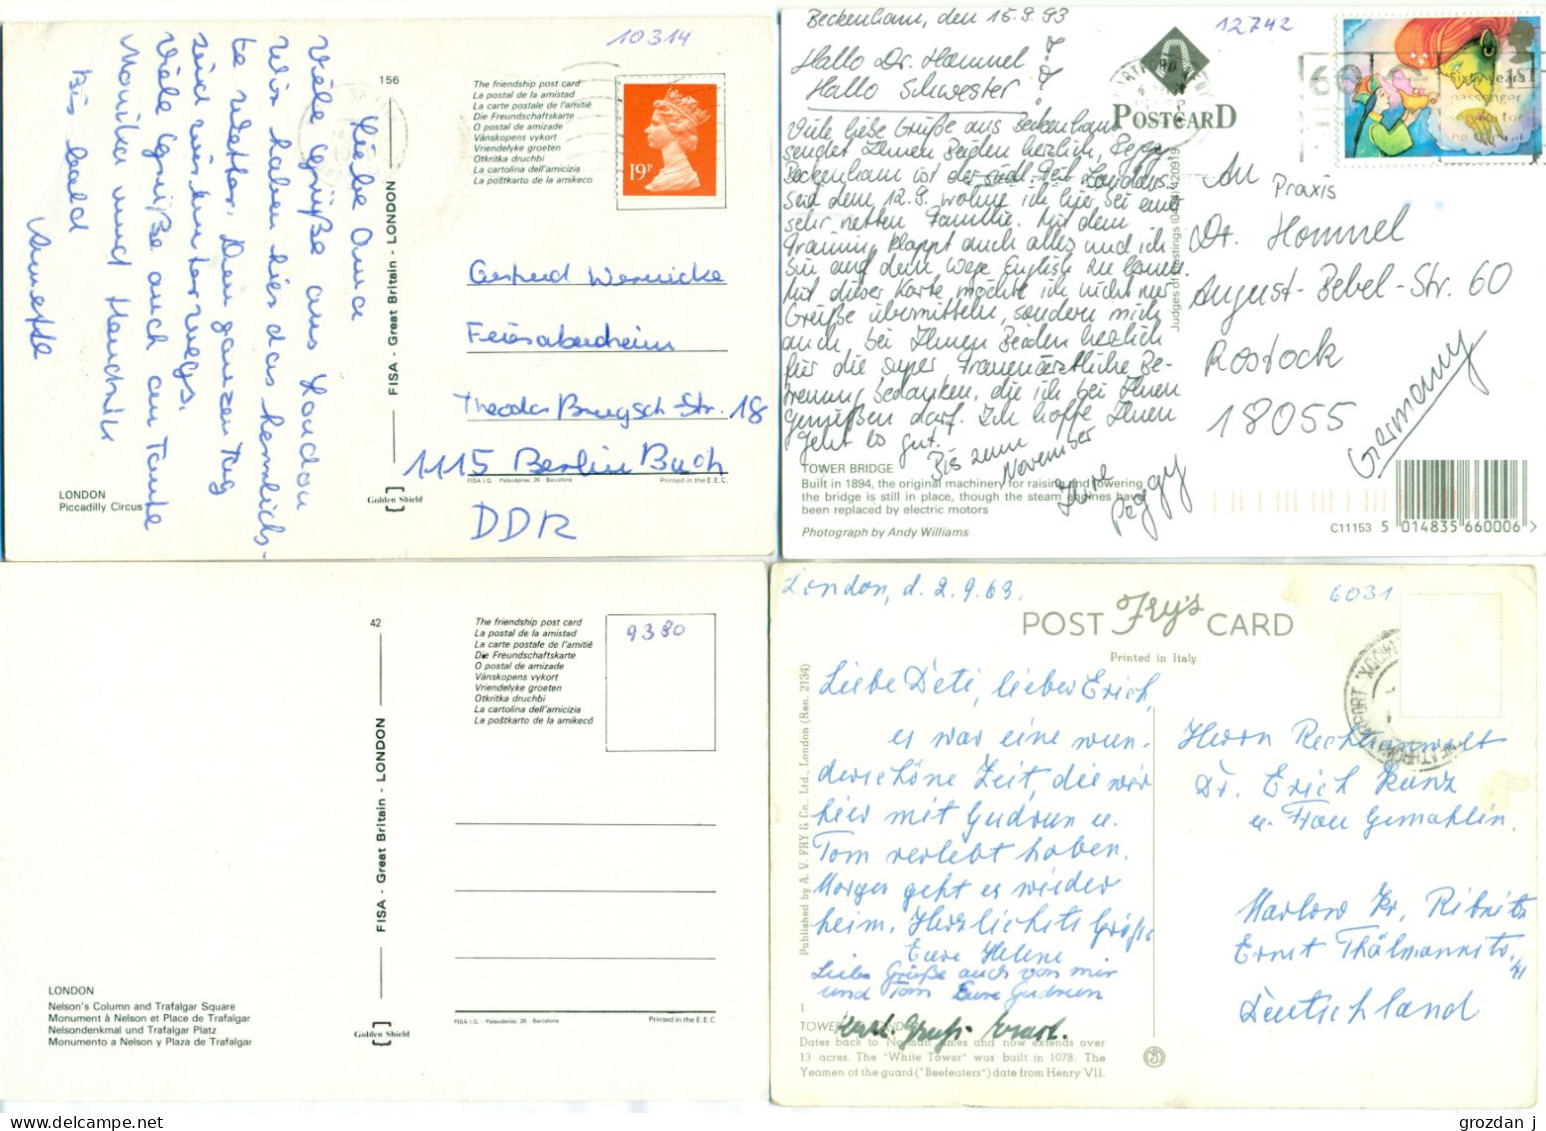 10314
156
The friendship post card
La postal de la amistad
La carte postale de l'amitié
Die Freundschaftskarte
O postal de amizade
Vänskopens vykort
Vriendelyke groeten
Otkritka druchbi
La cartolina dell'amicizia
La poŝtkarto de la amikeco
19P
Liebe Oma
Viele Grüße aus London
Wir haben hier das herrlichs-
te Wetter. Den ganzen Tag
sind wir unterwegs.
Viele Grüße auch an Tante
Monika und Hendrik
Bis bald
Annette
FISA - Great Britain - LONDON
Gertrud Wernicke
Feierabendheim
Theodor Brugsch Str. 18
1115 Berlin Buch
DDR
LONDON
Piccadilly Circus
Golden Shield
FISA I.G. - Palaudarias, 26 - Barcelona
Printed in the E.E.C.
Beckenham, den 15.9.93
12742
Hallo Dr. Hommel !
Hallo Schwester !
POSTCARD
Viele liebe Grüße aus Beckenham
sendet Ihnen Beiden herzlich, Peggy
Beckenham ist der süd. Teil Londons.
Seit dem 12.9. wohne ich hier bei einer
sehr netten Familie. Mit dem
Training klappt auch alles und ich
bin auf dem Wege English zu lernen.
Mit dieser Karte möchte ich nicht nur
Grüße übermitteln, sondern mich
auch bei Ihnen Beiden herzlich
für die super Frauenärztliche Be-
treuung bedanken, die ich bei Ihnen
genießen darf. Ich hoffe Ihnen
geht es gut!
Bis zum
November
Ihre
Peggy
Judges of Hastings (0424) 420919
60
sixty years
passenger
service for
An
Praxis
Dr. Hommel
August-Bebel-Str. 60
Rostock
18055
Germany
TOWER BRIDGE
Built in 1894, the original machinery for raising and lowering
the bridge is still in place, though the steam engines have
been replaced by electric motors
Photograph by Andy Williams
C11153
5 014835 660006 >
42
The friendship post card
La postal de la amistad
La carte postale de l'amitié
Die Freundschaftskarte
O postal de amizade
Vänskopens vykort
Vriendelyke groeten
Otkritka druchbi
La cartolina dell'amicizia
La poŝtkarto de la amikecô
9380
FISA - Great Britain - LONDON
LONDON
Nelson's Column and Trafalgar Square
Monument à Nelson et Place de Trafalgar
Nelsondenkmal und Trafalgar Platz
Monumento a Nelson y Plaza de Trafalgar
Golden Shield
FISA I.G. - Palaudarias, 26 - Barcelona
Printed in the E.E.C.
London, d. 2.9.63.
6031
POST Fry's CARD
Printed in Italy
Liebe Deti, lieber Erich,
es war eine wun-
derschöne Zeit, die wir
hier mit Gudrun u.
Tom verlebt haben.
Morgen geht es wieder
heim. Herzlichste Grüße
Eure Helene
Liebe Grüße auch von mir
und Tom Eure Gudrun
Published by A. V. FRY & Co., Ltd., London (Ran. 2134)
Herrn Rechtsanwalt
Dr. Erich Kunz
u. Frau Gemahlin.
Marlow Kr. Ribnitz
Ernst Thälmannstr.
Deutschland
1
Dates back to Norman times and now extends over
13 acres. The "White Tower" was built in 1078. The
Yeomen of the guard ("Beefeaters") date from Henry VII.
grozdan j